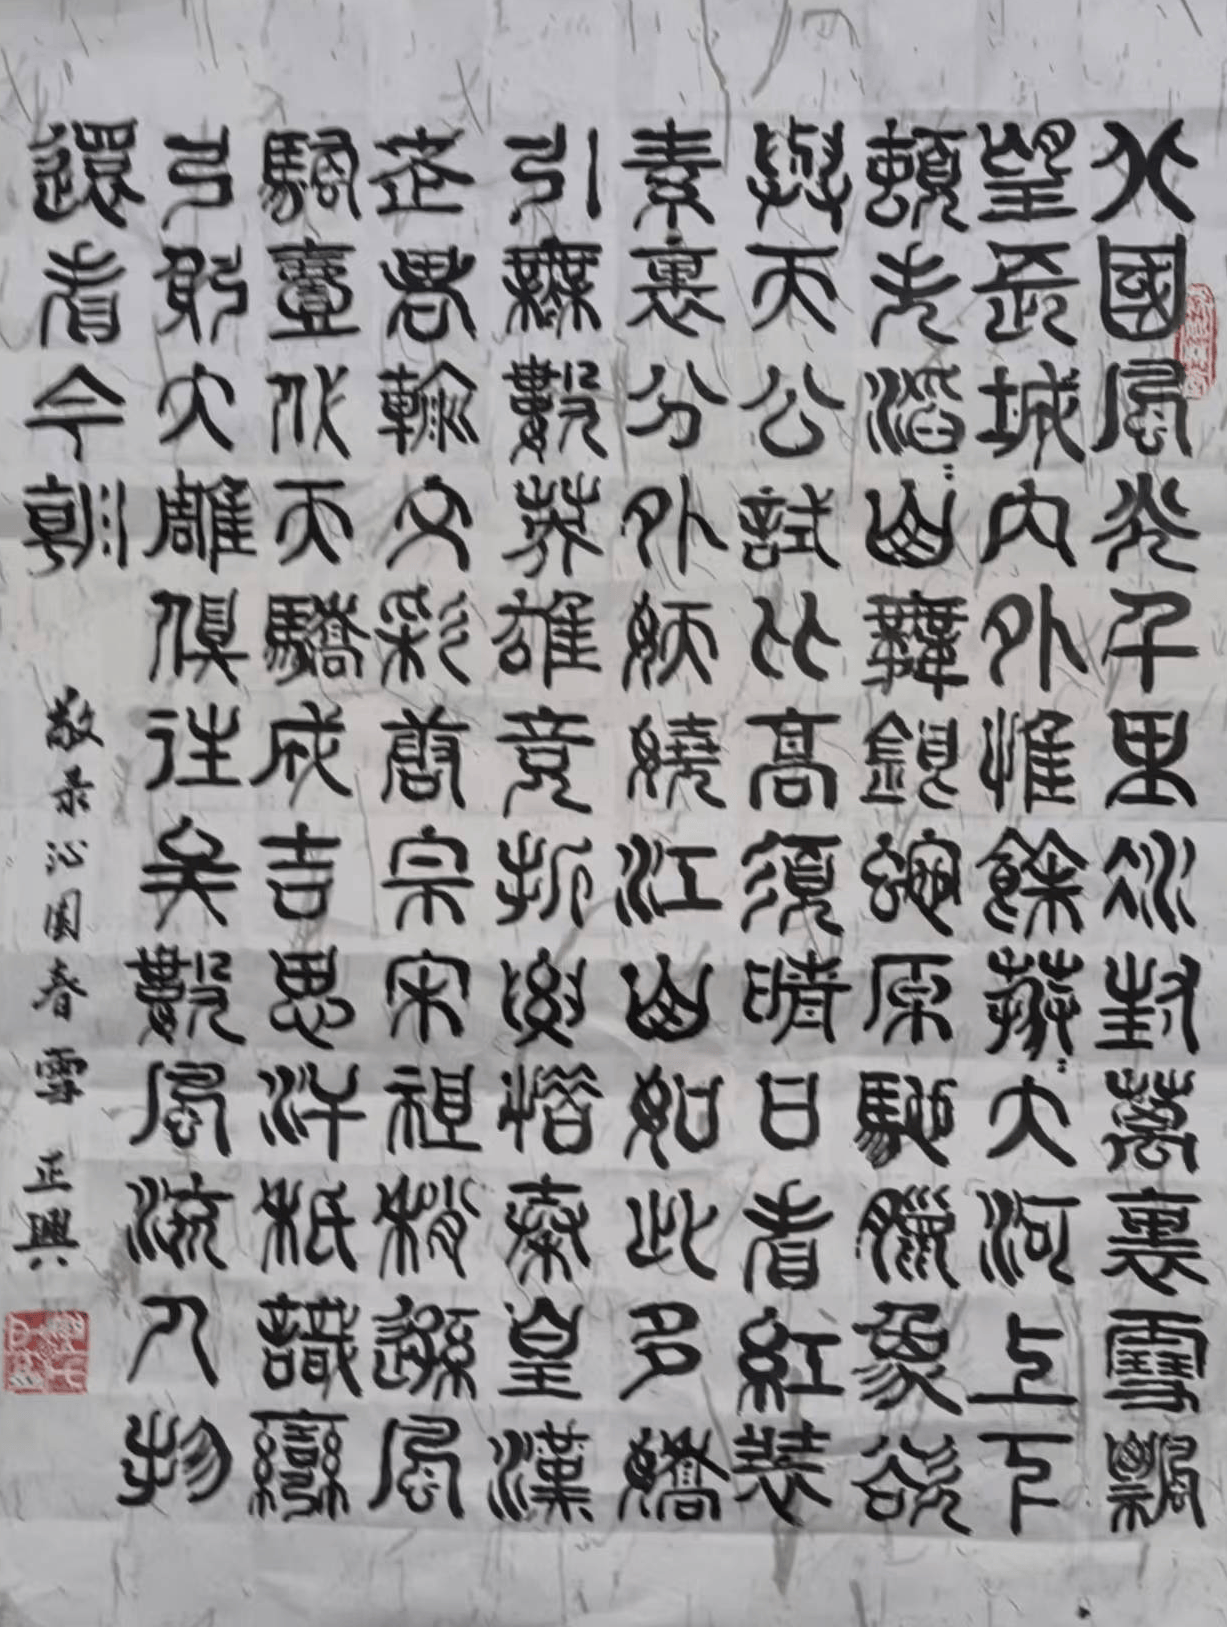 北國風光千里冰封萬裏雪飄
望長城內外惟餘莽〻大河上下
頓失滔〻山舞銀蛇原馳臘象欲
與天公試比高須晴日看紅裝
素裹分外妖嬈江山如此多嬌
引無數英雄競折腰惜秦皇漢
武畧輸文彩唐宗宋祖稍遜風
騷壹代天驕成吉思汗祇識彎
弓射大雕俱往矣數風流人物
還看今朝
敬录沁园春雪 正興